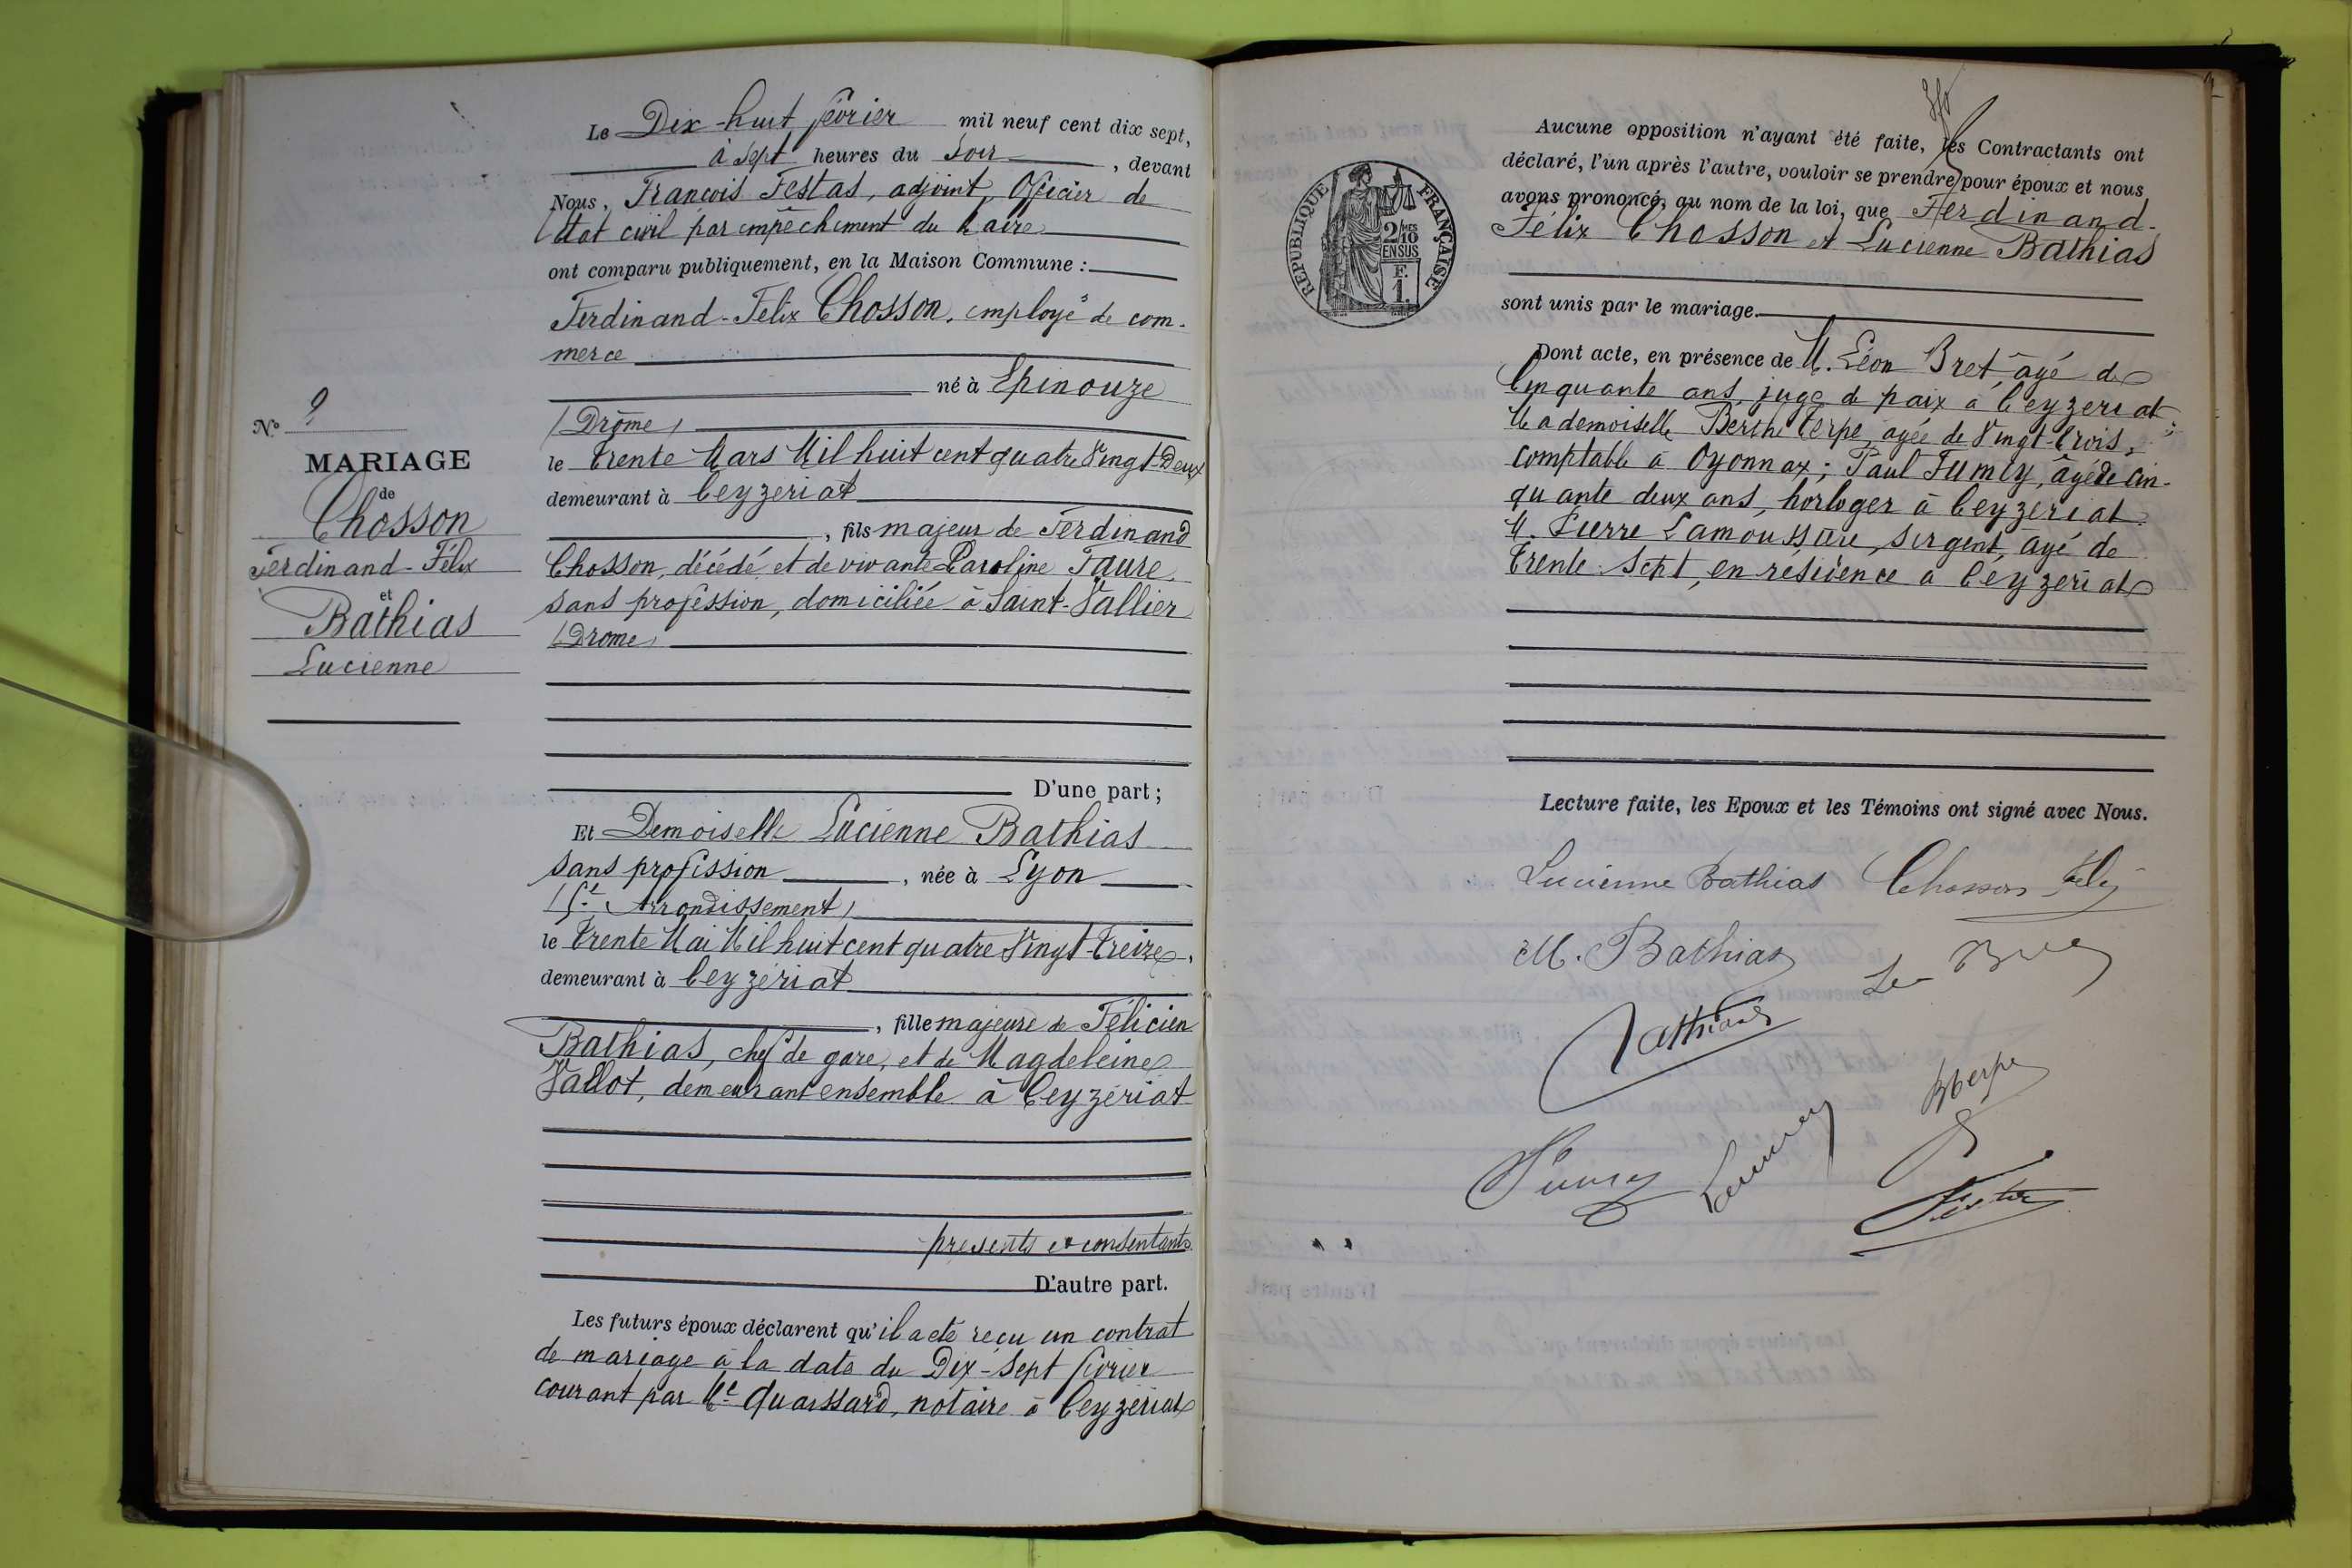 Le Dix-huit février mil neuf cent dix sept,
à sept heures du Soir, devant
Nous, François Festas, adjoint, Officier de
l'état civil par empêchement du Maire
ont comparu publiquement, en la Maison Commune :
Ferdinand-Félix Chosson, employé de com-
merce
né à Epinouze
(Drôme)
le Trente Mars Mil huit cent quatre Vingt-Deux
demeurant à Ceyzeriat
, fils majeur de Ferdinand
Chosson, décédé et de vivante Caroline Faure
sans profession, domiciliée à Saint-Vallier
(Drome)
D'une part ;
Et Demoiselle Lucienne Bathias
sans profession, née à Lyon
Arrondissement)
le Trente Mai Mil huit cent quatre Vingt-Treize,
demeurant à Ceyzériat
, fille majeure de Félicien
Bathias, chef de gare, et de Magdeleine
Vallot, demeurant ensemble à Ceyzériat
présents et consentants
D'autre part.
Les futurs époux déclarent qu'il a été reçu un contrat
de mariage à la date du Dix-Sept février
courant par Me Quarssard, notaire à Ceyzériat
N.° 2
MARIAGE
de
Chosson
Ferdinand-Félix
et
Bathias
Lucienne
REPUBLIQUE FRANÇAISE
2/10 EN SUS
F. 1.
Aucune opposition n'ayant été faite, les Contractants ont
déclaré, l'un après l'autre, vouloir se prendre pour époux et nous
avons prononcé, au nom de la loi, que Ferdinand-
Félix Chosson et Lucienne Bathias
sont unis par le mariage.
Dont acte, en présence de M. Léon Bret, âgé de
Cinquante ans, juge de paix à Ceyzeriat;
Mademoiselle Berthe Terpe, agée de Vingt-Trois,
comptable à Oyonnax; Paul Fumey, âgé de Cin-
quante deux ans, horloger à Ceyzériat.
M. Pierre Lamoussière, sergent, agé de
Trente-Sept, en résidence à Ceyzériat
Lecture faite, les Epoux et les Témoins ont signé avec Nous.
Lucienne Bathias Chosson Félix
M. Bathias
Bathias
BTerpe
Fumey
Festas